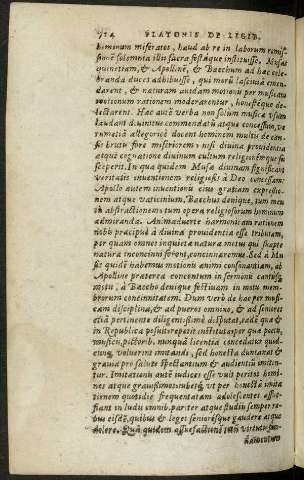 714 PLATONIS DE LEGIB.
hominum miseratos, haud ab re in laborum remis-
sionē solemnia illis sacra festáque instituisse, Musas
quinetiam, & Apollinē, & Bacchum ad hæc cele-
branda duces adhibuisse, qui morū lasciuiā emen-
darent, & naturam auidam motionum per musicam
motionum rationem moderarentur, honestéque de-
lectarent. Hæc autē verba non solum musicæ vsum
laudant diuinitus commendatū atque concessum, ve-
rumetiā allegoricè docent hominem multo de cau-
sis bruto fore miseriorem, nisi diuina prouidentia
atque cognatione diuinum cultum religionémque su
sceperit. In qua quidem Musa diuinam significant
veritatis inuentionem religiosis à Deo concessam.
Apollo autem inuentionis eius gratiam expeditio-
nem atque vaticinium, Bacchus denique, tum men
tis abstractionem tum opera religiosorum hominum
admiranda. Animaduerte harmoniam rationem
nobis præcipuè à diuina prouidentia esse tributam,
per quam omnes inquietæ naturæ motus qui suapte
natura inconcinni forent, concinnaremus. Sed à Mu
sis quidē habemus motionis animi consonantiam, ab
Apolline præterea concentum in sermonis cantúsq;
motu, à Baccho denique festiuam in motu mem-
brorum concinnitatem. Dum verò de hac per musi-
cam disciplina, & ad pueros omnino, & ad senes
etiā pertinente diligentissimè disputat, talē quæ &
in Republica posuit repetit institutum: per quā poëtis,
musicis, pictorib. nunquā licentia concedatur quid
cunq; voluerint imitandi, sed honesta duntaxat &
grauia pro salute spectantium & audientiū imiten-
tur. Imitationis autē iudices esse vult peritos homi-
nes atque grauissimos: iubetq; vt per honestā imita
tionem quotidie frequentatam adolescentes assue-
fiant in ludis omnib. pariter atque studiis semper re-
bus eisdē, quibus & leges senioresque gaudere atque
dolere. Quā quidem assuefactionē tum virtutis fun-
damentum